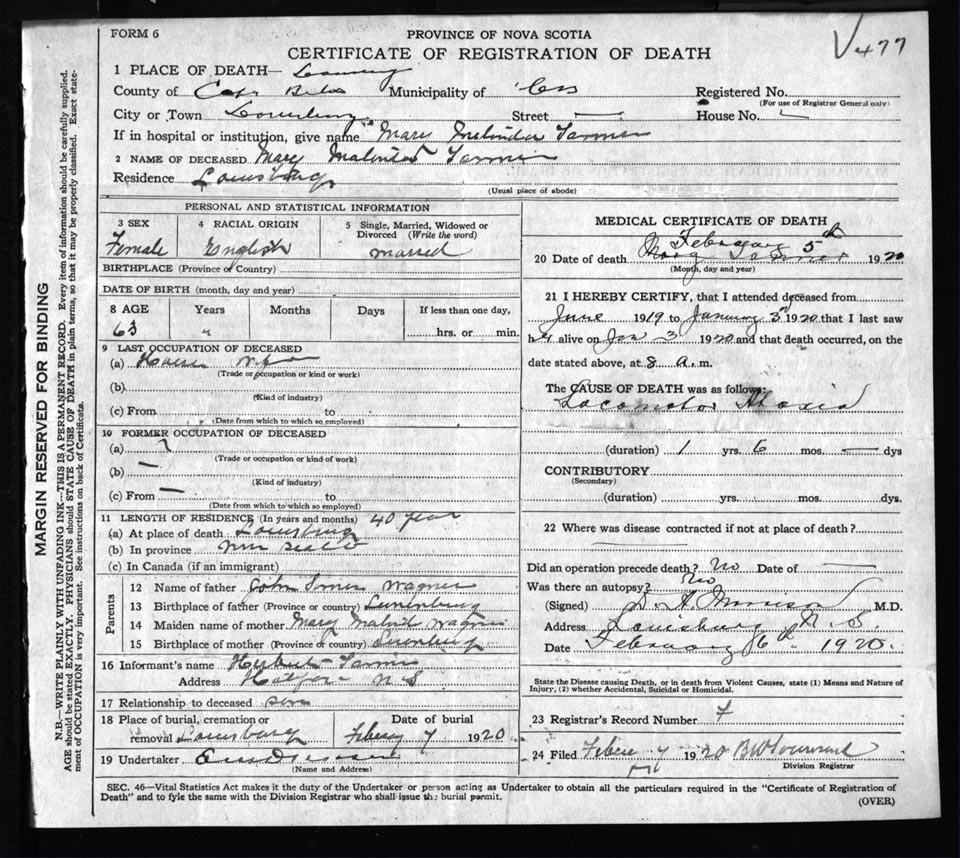 FORM 6
PROVINCE OF NOVA SCOTIA
V477
CERTIFICATE OF REGISTRATION OF DEATH
1 PLACE OF DEATH—
County of Cape Breton Municipality of
Registered No.
(For use of Registrar General only)
City or Town Louisburg Street — House No.
If in hospital or institution, give name Mary Melinda
2 NAME OF DECEASED Mary Malinda
Residence Louisburg
(Usual place of abode)
PERSONAL AND STATISTICAL INFORMATION
3 SEX
4 RACIAL ORIGIN
5 Single, Married, Widowed or Divorced (Write the word)
Female English married
BIRTHPLACE (Province or Country)
DATE OF BIRTH (month, day and year)
8 AGE Years Months Days If less than one day,
63 hrs. or min.
9 LAST OCCUPATION OF DECEASED
(a) House Wife
(Trade or occupation or kind or work)
(b)
(Kind of industry)
(c) From to
(Date from which to which so employed)
10 FORMER OCCUPATION OF DECEASED
(a)
(Trade or occupation or kind of work)
(b) —
(Kind of industry)
(c) From — to
(Date from which to which so employed)
11 LENGTH OF RESIDENCE (In years and months) 40 year
(a) At place of death Louisburg
(b) In province
(c) In Canada (if an immigrant)
Parents
12 Name of father John Wagner
13 Birthplace of father (Province or country) Lunenburg
14 Maiden name of mother Mary Wagner
15 Birthplace of mother (Province or country) Lunenburg
16 Informant's name Hubert
Address Halifax N S
17 Relationship to deceased son
18 Place of burial, cremation or removal Louisburg
Date of burial
Febery 7 1920
19 Undertaker
(Name and Address)
MEDICAL CERTIFICATE OF DEATH
February 5th
20 Date of death 1920
(Month, day and year)
21 I HEREBY CERTIFY, that I attended deceased from
June 1919 to January 3rd 1920 that I last saw
her alive on Jan 3 1920 and that death occurred, on the
date stated above, at 8 a.m.
The CAUSE OF DEATH was as follows:
Locomotor Ataxia
(duration) 1 yrs. 6 mos. — dys
CONTRIBUTORY
(Secondary)
(duration) yrs. mos. dys.
22 Where was disease contracted if not at place of death?
Did an operation precede death? No Date of —
Was there an autopsy? No
(Signed) D. A. Morrison M.D.
Address Louisburg N. S.
Date February 6th 1920.
State the Disease causing Death, or in death from Violent Causes, state (1) Means and Nature of
Injury, (2) whether Accidental, Suicidal or Homicidal.
23 Registrar's Record Number 7
24 Filed Febery 7 1920
Division Registrar
SEC. 46—Vital Statistics Act makes it the duty of the Undertaker or person acting as Undertaker to obtain all the particulars required in the "Certificate of Registration of
Death" and to fyle the same with the Division Registrar who shall issue the burial permit.
(OVER)
MARGIN RESERVED FOR BINDING
N.B.—WRITE PLAINLY WITH UNFADING INK—THIS IS A PERMANENT RECORD. Every item of information should be carefully supplied.
AGE should be stated EXACTLY. PHYSICIANS should STATE CAUSE OF DEATH in plain terms, so that it may be properly classified. Exact state-
ment of OCCUPATION is very important. See instructions on back of Certificate.